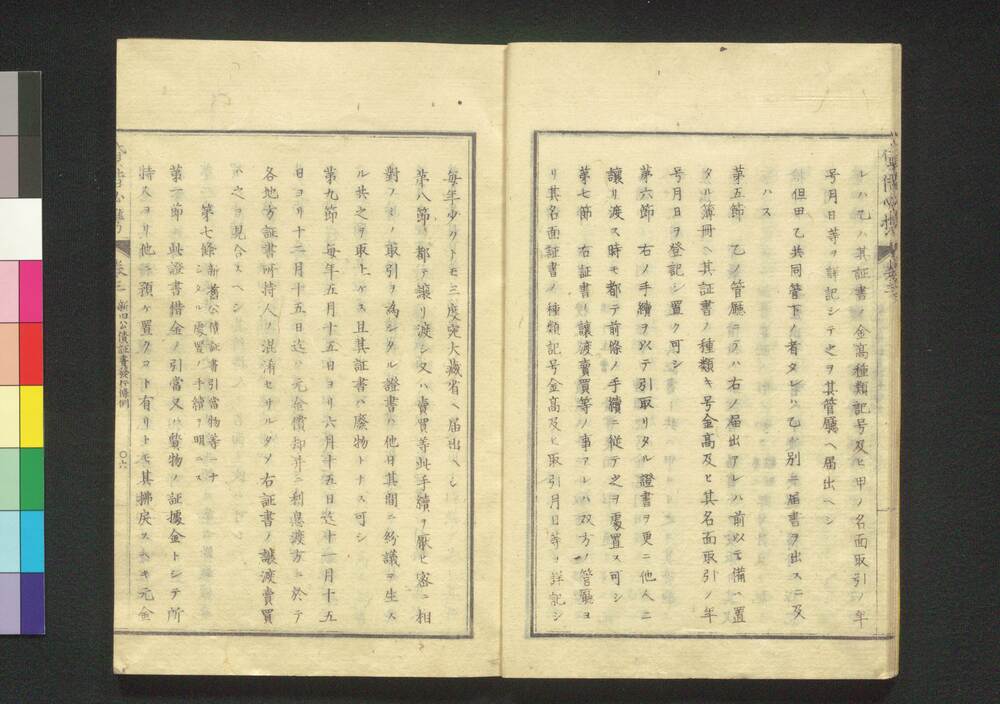 レハ乙ハ其証書ノ金高種類記号及ヒ甲ノ名面取引ノ年
号月日等ヲ詳記シテ之ヲ其管廳ヘ届出ヘシ
但甲乙共同管下ノ者タレハ乙ハ別ニ届書ヲ出スニ及
ハス
第五節 乙ノ管廳ニテハ右ノ届出アレハ前以テ備ヘ置
タル簿冊ヘ其証書ノ種類キ号金高及ヒ其名面取引ノ年
号月日ヲ登記シ置ク可シ
第六節 右ノ手續ヲ以テ引取リタル證書ヲ更ニ他人ニ
讓リ渡ス時モ都テ前條ノ手續ニ従テ之ヲ處置ス可シ
第七節 右証書ノ讓渡賣買等ノ事アレハ双方ノ管廳ヨ
リ其名面証書ノ種類記号金高及ヒ取引月日等ヲ詳記シ
毎年少クトモ三度宛大蔵省ヘ届出ヘシ
第八節 都テ讓リ渡シ又ハ賣買等此手續ヲ厭ヒ窃ニ相
對ノミノ取引ヲ為シタル證書ハ他日其間ニ紛議ヲ生ス
ル共之ヲ取上ケス且其証書ハ廢物トナス可シ
第九節 毎年五月十五日ヨリ六月十五日迄十一月十五
日ヨリ十二月十五日迄ハ元金償却并ニ利息渡方ニ於テ
各地方証書所持人ノ混淆セサルタメ右証書ノ讓渡賣買
ハ之ヲ見合スヘシ
第七條 新舊公債証書引當物等ニナ
シタル處置ノ手續ヲ明ニス
第一節 此證書借金ノ引當又ハ質物ノ証據金トシテ所
持人ヨリ他ヘ預ケ置クコト有リトモ其拂戻スヘキ元金
巻三 新旧公債証書發行條例
〇六